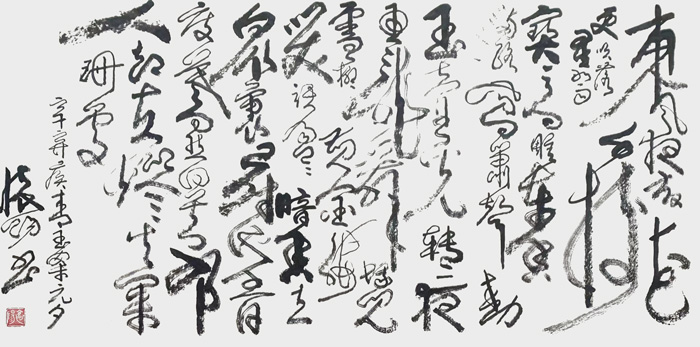 東風夜放花
千樹
更吹落
星如雨
寶馬雕車香
滿路鳳簫聲動
玉壺光轉一夜
魚龍舞蛾兒
雪柳黃金縷
笑語盈盈暗香去
眾裏尋他千百
度驀然回首那
人卻在燈火闌
珊處
辛棄疾青玉案元夕